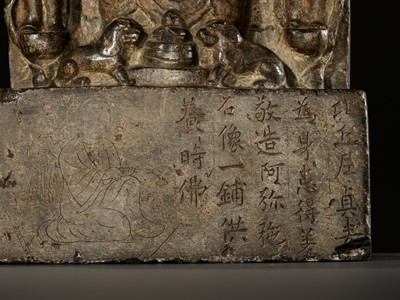 比丘尼真
為身患得差
敬造阿弥陁
石像一鋪供
養時佛